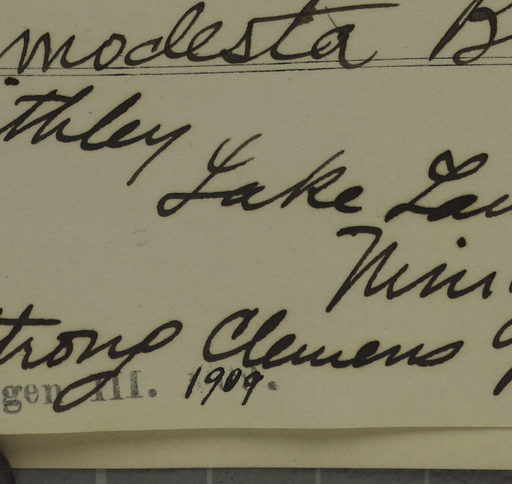 modesta B
thley
Lake Lau
Nini
trong Clemens
gen III. 1909.